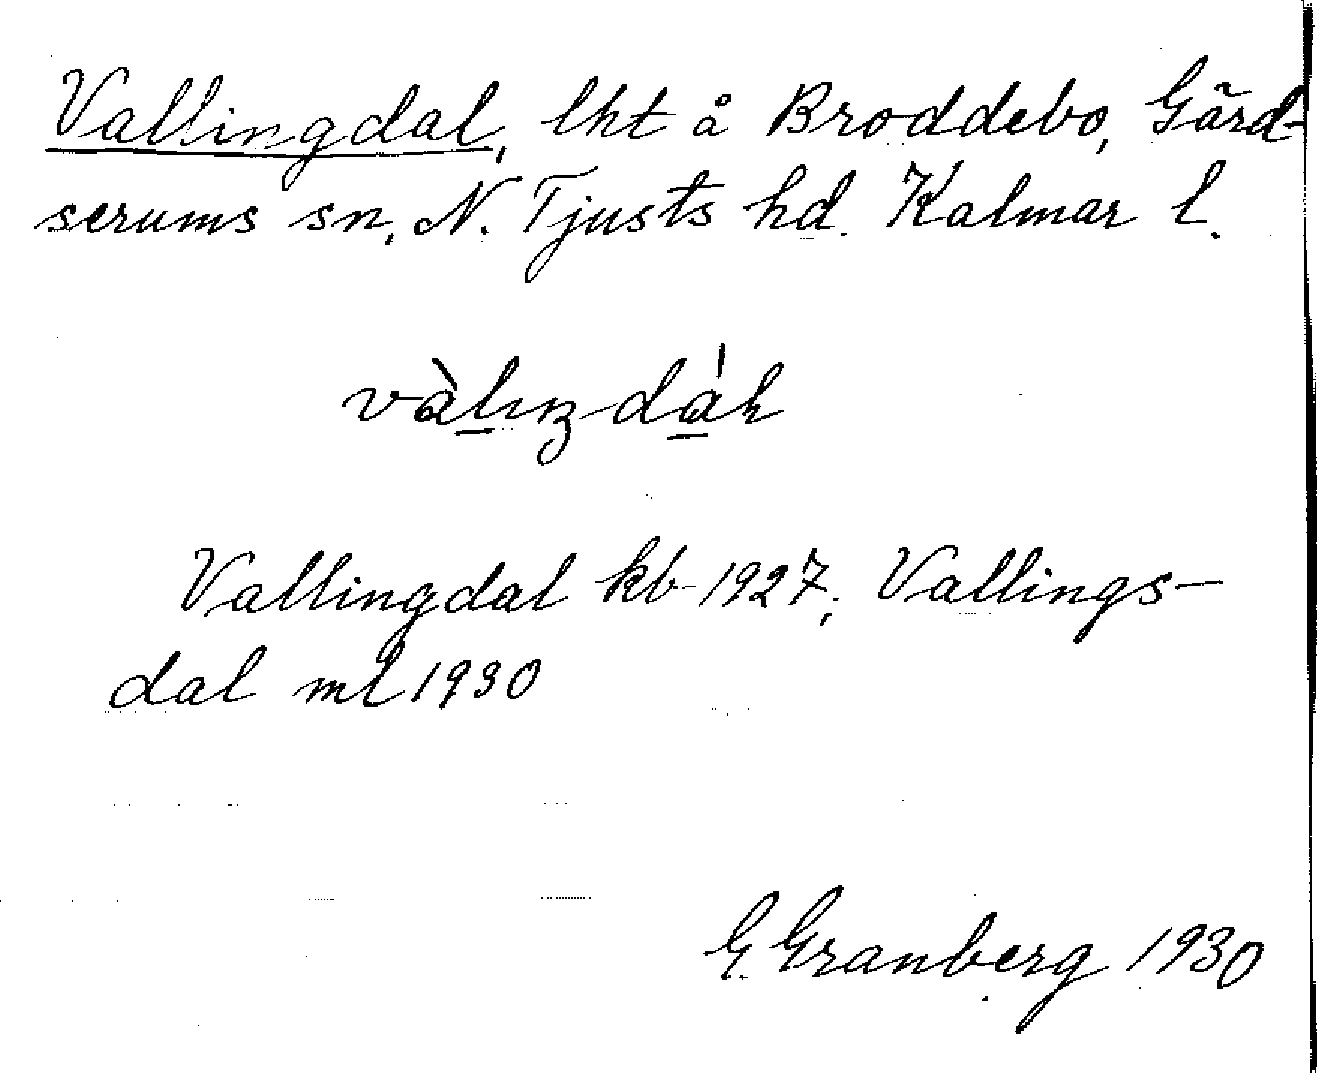 Vallingdal, lht å Broddebo, Gärd-
serums sn, N. Tjusts hd. Kalmar l.
Vallingdal kb 1927, Vallings-
dal ml 1930
G Granberg 1930